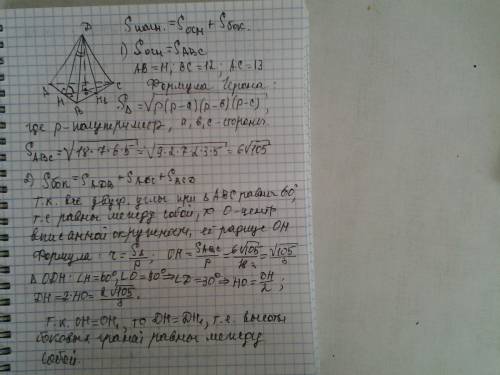 D
A
B
C
H
H₁
O
Sполн. = Sосн + Sбок.
1) Sосн = SABC
AB = 11; BC = 12; AC = 13
Формула Герона:
S△ = √p(p-a)(p-b)(p-c),
где p-полупериметр, a, b, c-стороны
SABC = √18·7·6·5 = √9·2·7·2·3·5 = 6√105
2) Sбок = SADB + SADC + SBCD
т.к. все двугр. углы при △ABC равны 60°,
т.е равны между собой, то O-центр
вписанной окружности, её радиус OH
Формула: r = S△/p; OH = SABC/p = 6√105/18 = √105/3
△ODH: ∠H = 60°, ∠O = 90° ⇒ ∠D = 30° ⇒ HO = DH/2;
DH = 2·HO = 2√105/3.
т.к. OH = OH₁, то DH = DH₁, т.е. высоты
боковых граней равны между
собой.